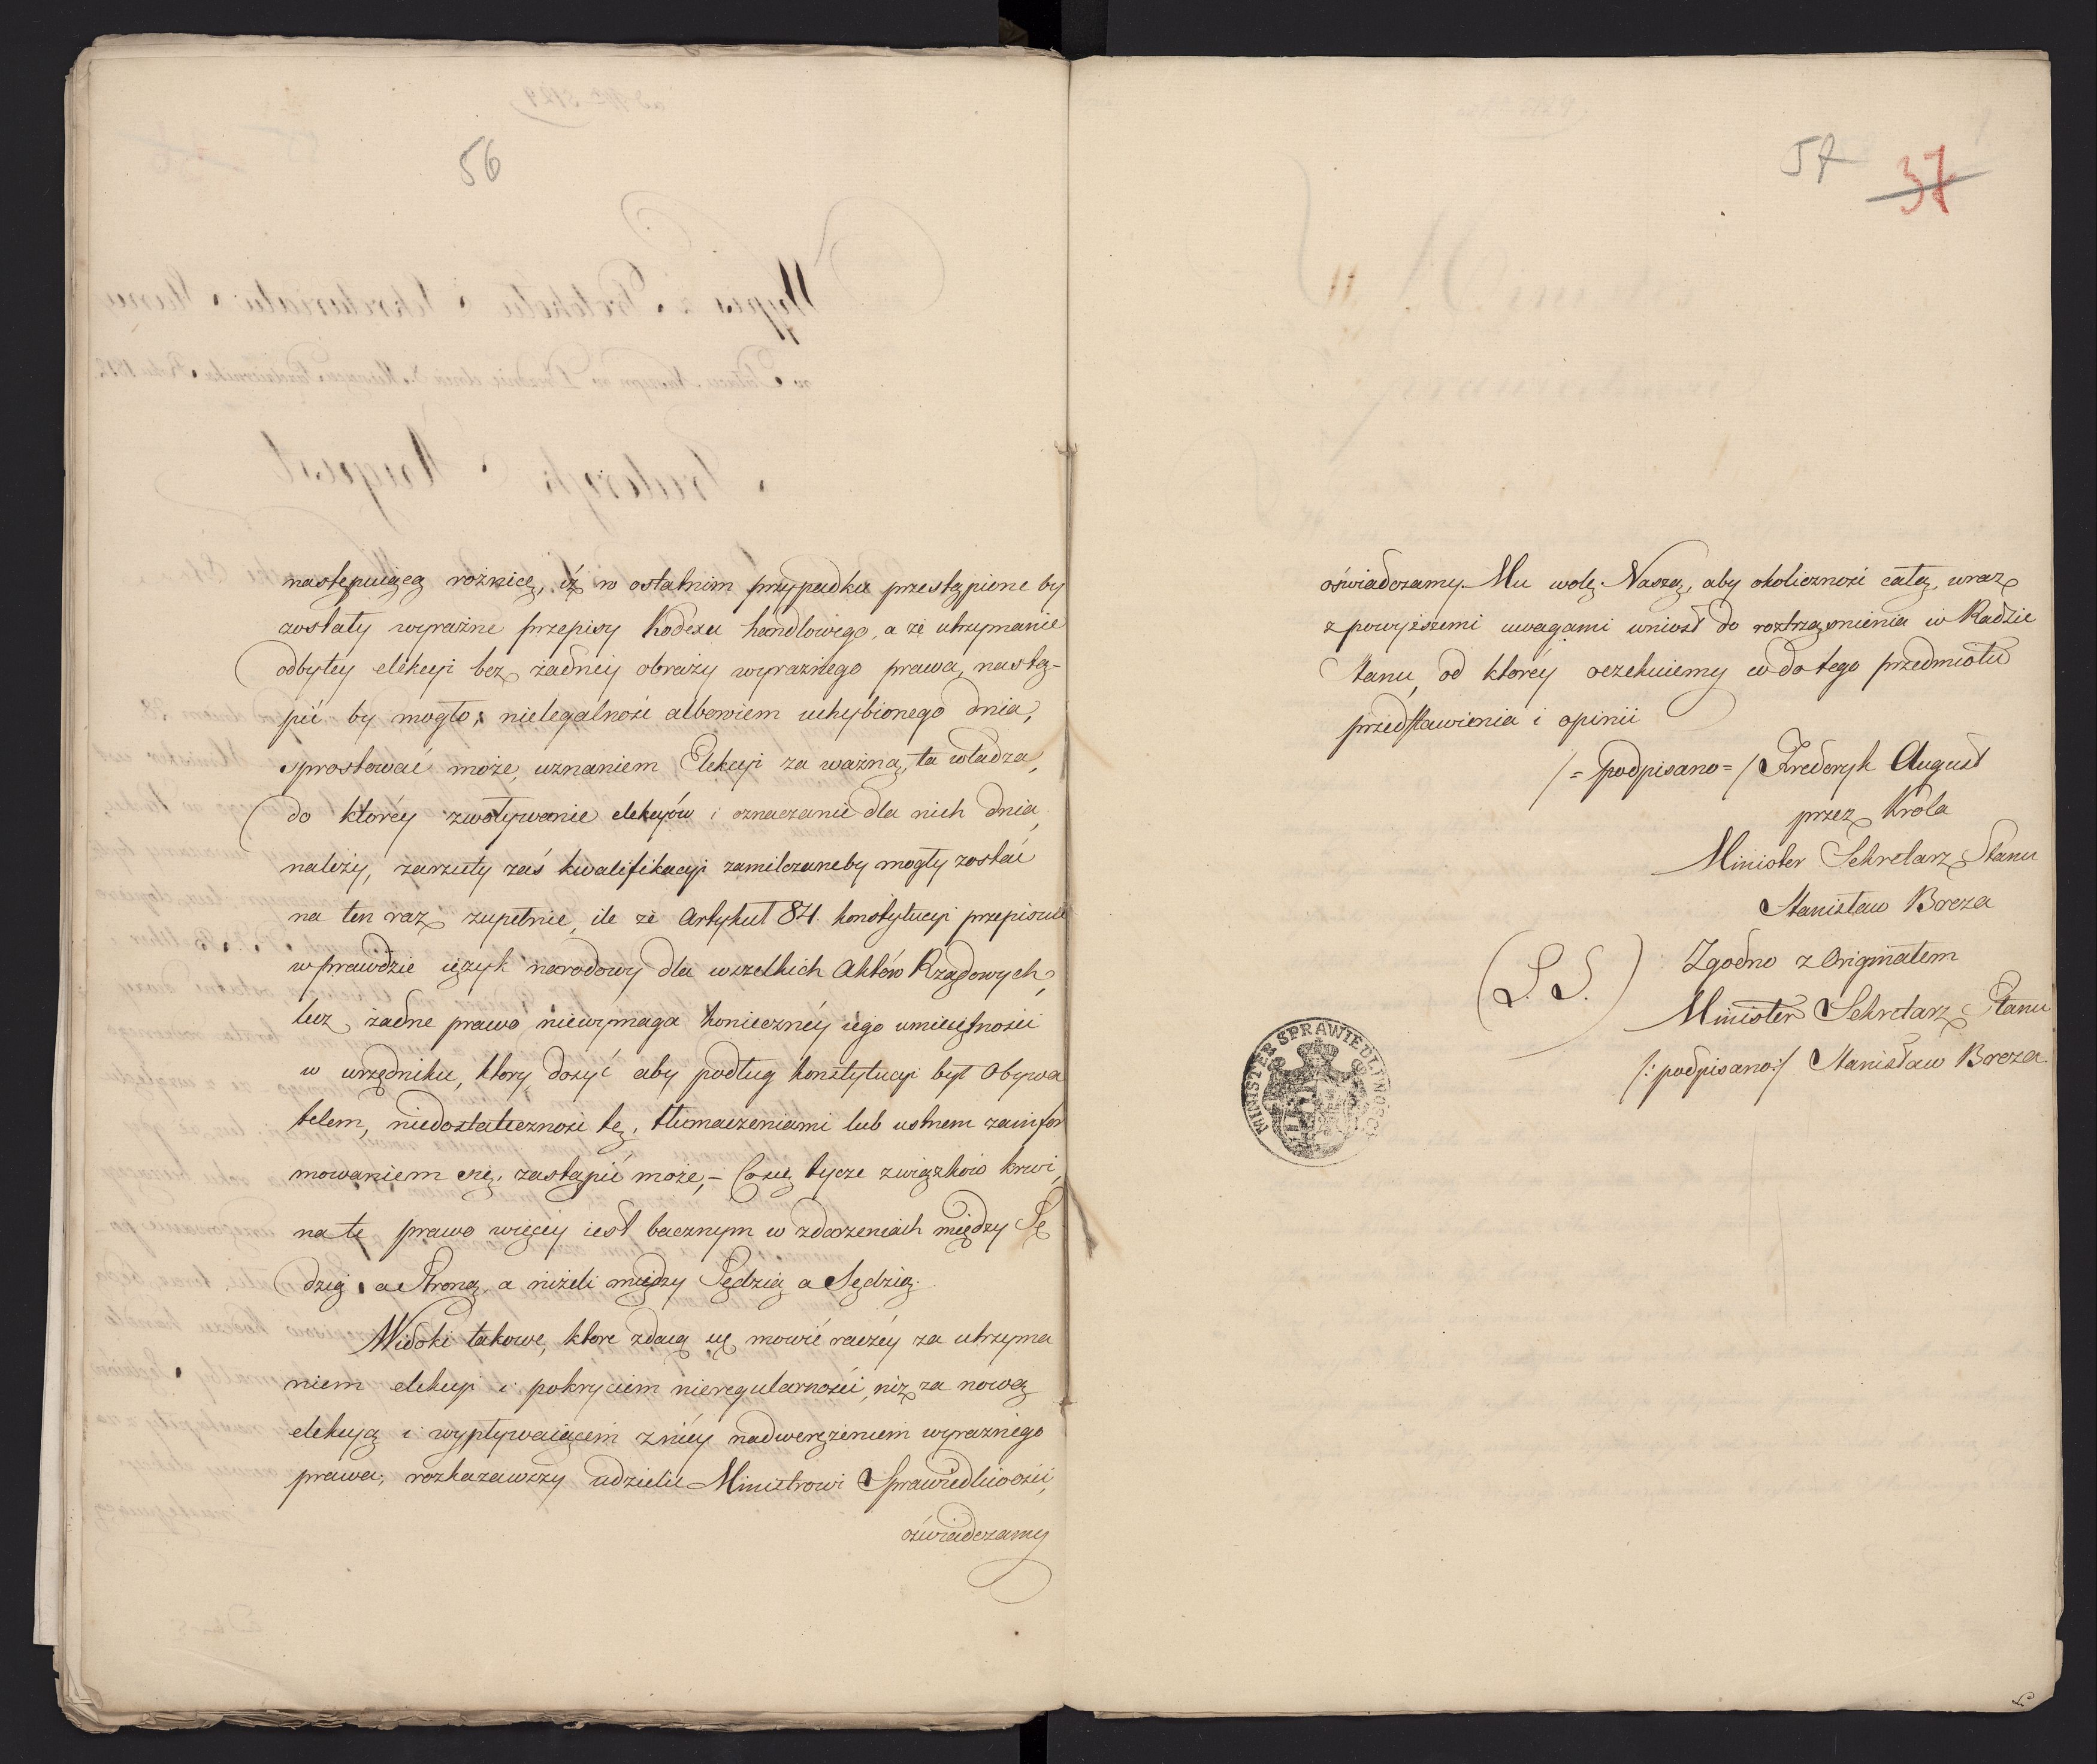 56
następuiącą rożnicę, iż w ostatnim przypadku przestąpione by
zostały wyraźne przepisy Kodexu handlowego, a że utrzymanie
odbytey elekcyi bez żadnéy obrazy wyraźnego prawa, nastą-
pić by mogło; nielegalność albowiem uchybionego dnia,
sprostować może, uznaniem Elekcyi za ważną, ta władza,
do któréy zwoływanie elekcyów i oznaczanie dla nich dnia,
należy, zarzuty zaś kwalifikacyi zamilczaneby mogły zostać
na ten raz zupełnie, ile że Artykuł 84 konstytucyi przepisuie
wprawdzie ięzyk narodowy dla wszelkich Aktów Rządowych,
lecz żadne prawo niewymaga konieczney iego umieiętności
w urzędniku, ktory dosyć aby podług konstytucyi był Obywa
telem, niedostateczność tę, tłumaczeniami lub ustnem zainfor
mowaniem się, zastąpić może, – Co się tycze związków krwi,
na te prawo więcey iest bacznym w zdarzeniach między Sę
dzią a Stroną, a niżeli między Sędzią a Sędzią.
Widoki takowe, ktore zdaią się mowić raczéy za utrzyma
niem elekcyi i pokryciem nieregularności, niż za nową
elekcyą i wypływaiącem z niéy nadwerężeniem wyraźnego
prawa, rozkazawszy udzielić Ministrowi Sprawiedliwości,
oświadczamy
57 37
oświadczamy Mu wolę Naszą, aby okoliczność całą, wraz
z powyższemi uwagami wniosł do roztrząśnienia w Radzie
Stanu, od któréy oczekuiemy w do tego przedmiotu
przedstawienia i opinii
/= podpisano =/ Fryderyk August
przez Króla
Minister Sekretarz Stanu
Stanisław Breza
(L. S.) Zgodno z Originałem
Minister Sekretarz Stanu
/: podpisano :/ Stanisław Breza.
MINISTER SPRAWIEDLIWOŚCI